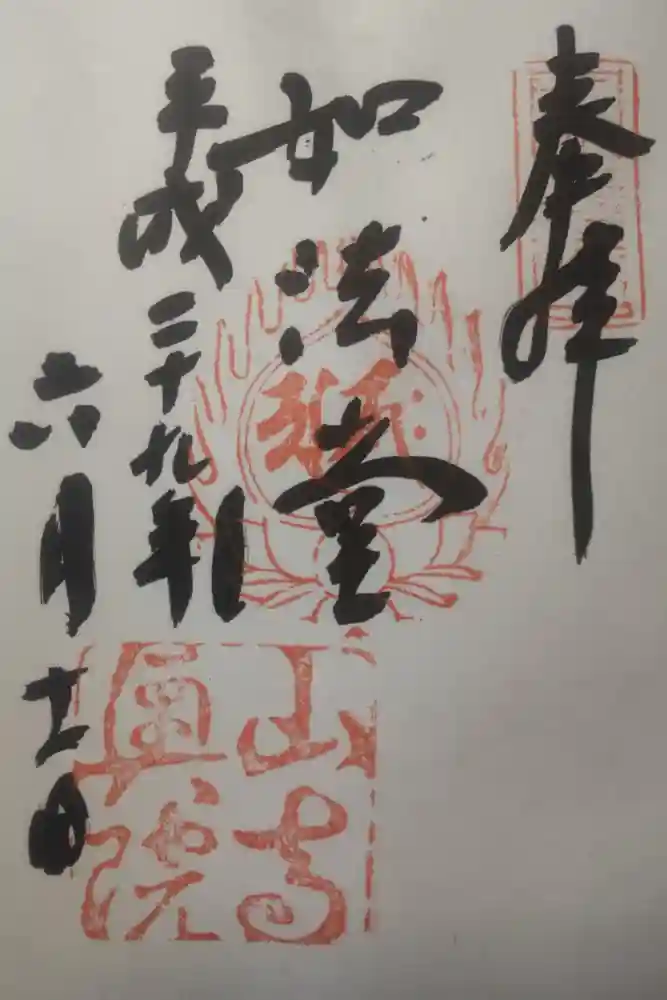 奉拝
如法堂
平成二十九年
六月十一日
山寺
奥院